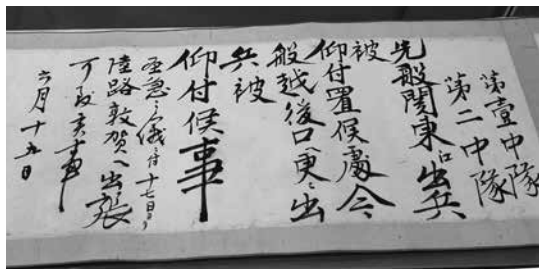 第壹中隊
第二中隊
先般関東口出兵
被
仰付置候處今
般越後口へ更ニ出
兵被
仰付候事
至急之儀ニ付十七日ゟ
陸路敦賀へ出張
可致候事
六月十五日